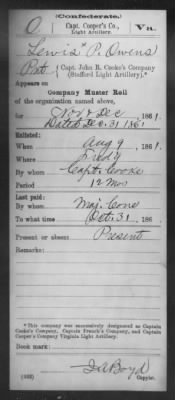 (Confederate.)
O | Capt. Cooper's Co., Light Artillery. | Va.
Lewis P. Owens
Pvt., Capt. John R. Cooke's Company
(Stafford Light Artillery).*
Appears on
Company Muster Roll
of the organization named above,
for Nov & Dec, 1861.
Dated Dec. 31 1861
Enlisted:
When Aug 9, 1861.
Where Fred'g
By whom Capt. Cooke
Period 12 Mos
Last paid:
By whom Maj. Cone
To what time Oct. 31, 1861.
Present or absent Present
Remarks:
*This company was successively designated as Captain
Cooke's Company, Captain French's Company, and Captain
Cooper's Company Virginia Light Artillery.
Book mark:
Boyd
(642) Copyist.